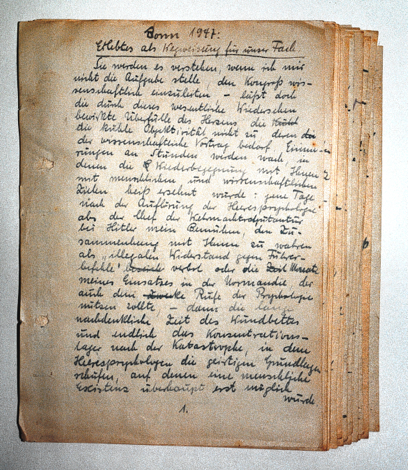 Bonn 1947:
Erlebtes als Wegweisung für unser Fach.
Sie werden es verstehen, wenn ich mir
nicht die Aufgabe stelle, den Kongreß wis-
senschaftlich einzuleiten – läßt doch
die durch dieses wesentliche Wiedersehen
bewirkte Überfülle des Herzens die
die kühle Objektivität nicht zu, deren
der wissenschaftliche Vortrag bedarf. Erinne-
rungen an Stunden werden wach, in
denen die Wiederbegegnung mit Ihnen
mit menschlichen und wissenschaftlichen
Zielen heiß ersehnt wurde: jene Tage
nach der Auflösung der Heerespsychologie
als der Chef der Wehrmachtadjutantur
bei Hitler mein Bemühen, den Zu-
sammenhang mit Ihnen zu wahren
als „illegalen Widerstand gegen Führer-
befehle" verbot oder die Zeit
meines Einsatzes in der Normandie, der
auch dem Rufe der Psychologie
nützen sollte – dann die lange
nachdenkliche Zeit des Wundbettes
und endlich das Konzentrations-
lager nach der Katastrophe, in dem
Heerespsychologen die geistigen Grundlagen
schufen, auf denen eine menschliche
Existenz überhaupt erst möglich
wurde
1.